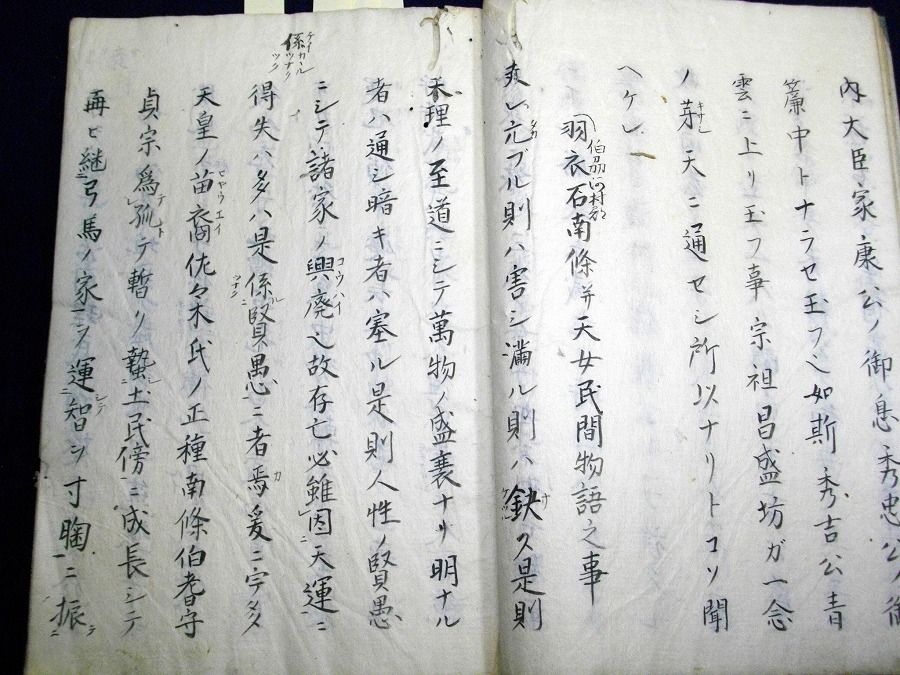 内大臣家康公ノ御息秀忠公ノ御
簾中トナラセ玉フ也如斯秀吉公青
雲ニ上リ玉フ事宗祖昌盛坊ガ一念
ノ芽天ニ通セシ所以ナリトコソ聞
ヘケレ
羽衣石南條并天女民間物語之事
伯州河村郡
夫レ亢ブル則ハ害シ滿ル則ハ缺ク是則
天理ノ至道ニシテ萬物ノ盛衰ナリ明ナル
者ハ通シ暗キ者ハ塞ル是則人性ノ賢愚
ニシテ諸家ノ興廃也故存亡必雖因天運ニ
得失ハ多ハ是係賢愚ニ者焉爰ニ宇多
天皇ノ苗裔佐々木氏ノ正種南條伯耆守
貞宗爲孤テ暫リ蟄土民傍ニ成長シテ
再ヒ継弓馬ノ家ヲ運智ヲ寸胸ニ振